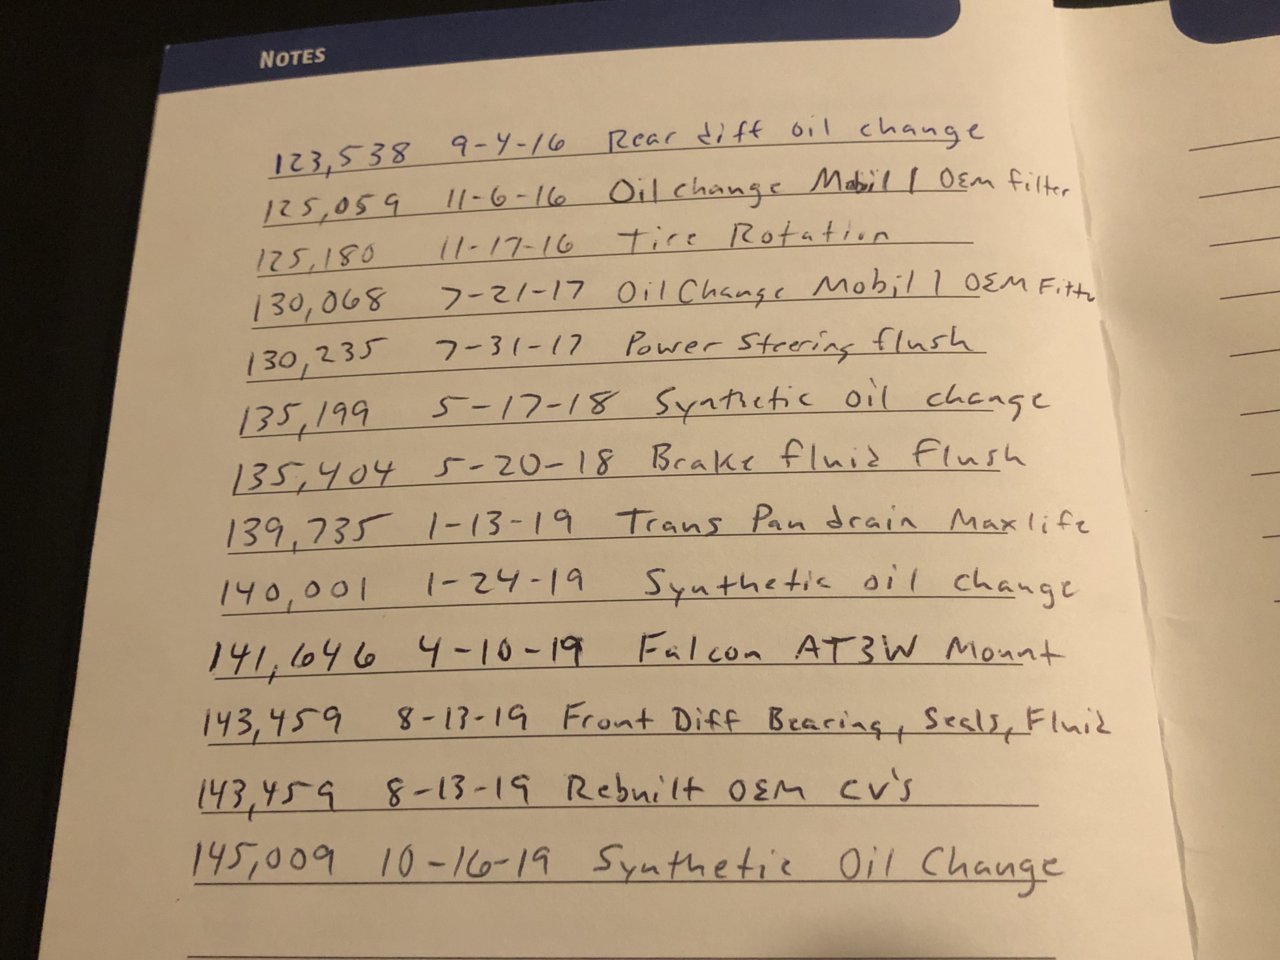 NOTES
123,538 9-4-16 Rear diff oil change
125,059 11-6-16 Oil change Mobil 1 OEM filter
125,180 11-17-16 Tire Rotation
130,068 7-21-17 Oil Change Mobil 1 OEM Filter
130,235 7-31-17 Power Steering flush
135,199 5-17-18 Synthetic oil change
135,404 5-20-18 Brake fluid Flush
139,735 1-13-19 Trans Pan drain Maxlife
140,001 1-24-19 Synthetic oil change
141,646 4-10-19 Falcon AT3W Mount
143,459 8-13-19 Front Diff Bearing, Seals, Fluid
143,459 8-13-19 Rebuilt OEM CV's
145,009 10-16-19 Synthetic Oil Change